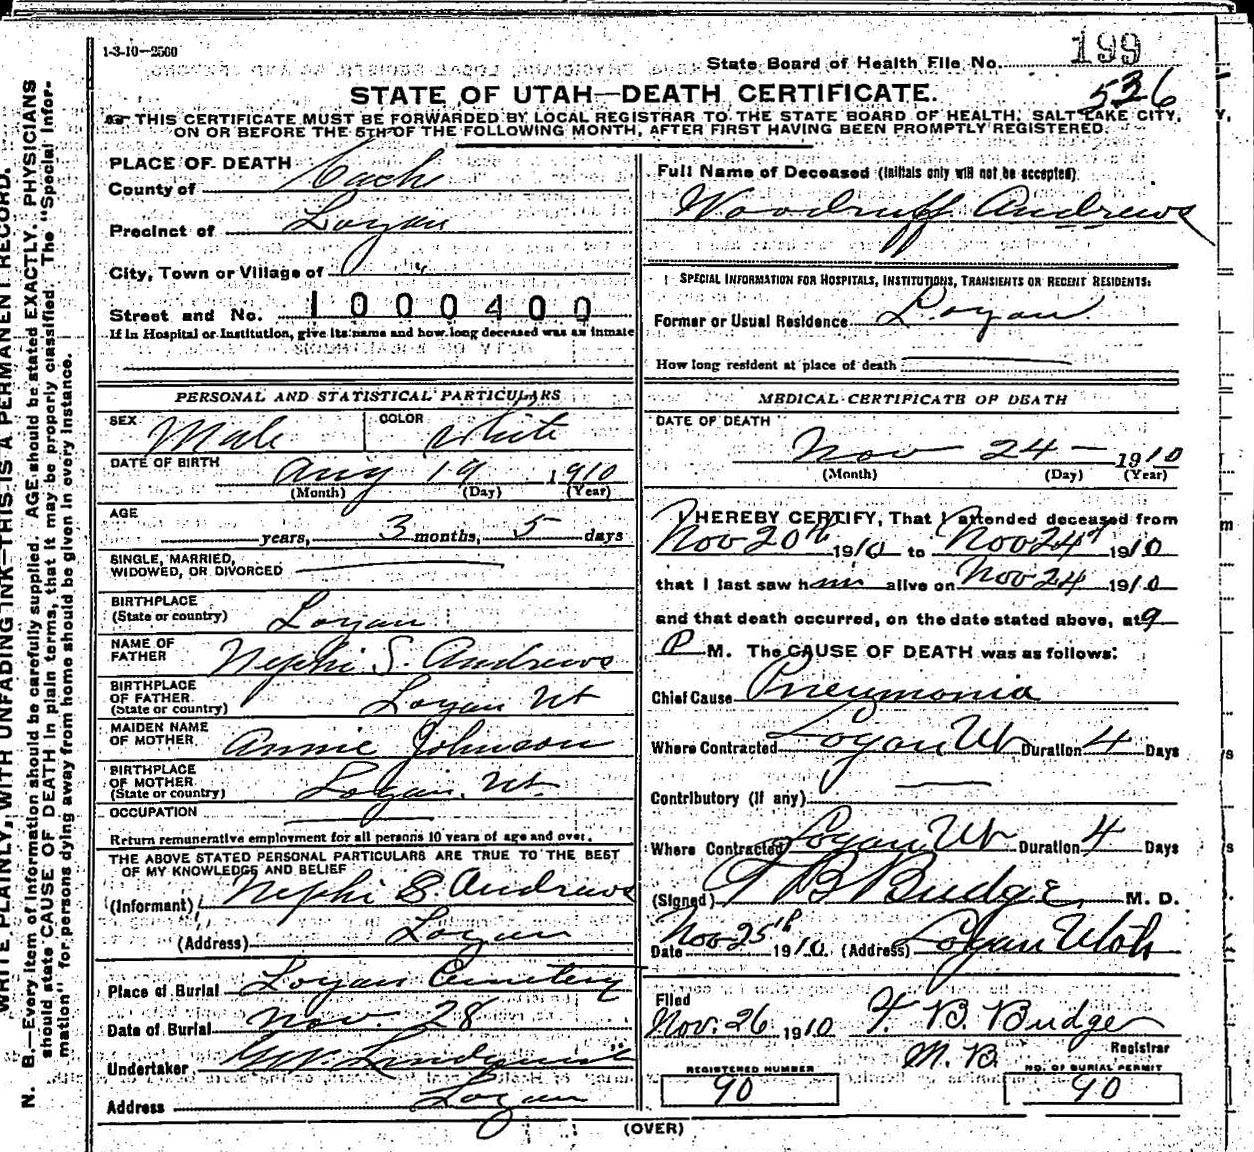 1-3-10—2500
State Board of Health File No. 199
536
STATE OF UTAH—DEATH CERTIFICATE.
THIS CERTIFICATE MUST BE FORWARDED BY LOCAL REGISTRAR TO THE STATE BOARD OF HEALTH, SALT LAKE CITY,
ON OR BEFORE THE 5TH OF THE FOLLOWING MONTH, AFTER FIRST HAVING BEEN PROMPTLY REGISTERED.
WRITE PLAINLY, WITH UNFADING INK—THIS IS A PERMANENT RECORD.
N. B.—Every item of information should be carefully supplied. AGE should be stated EXACTLY. PHYSICIANS
should state CAUSE OF DEATH in plain terms, that it may be properly classified. The "Special Infor-
mation" for persons dying away from home should be given in every instance.
PLACE OF DEATH
County of Cache
Precinct of Logan
City, Town or Village of "
Street and No. 1000400
If in Hospital or Institution, give its name and how long deceased was an inmate
PERSONAL AND STATISTICAL PARTICULARS
SEX Male COLOR White
DATE OF BIRTH Aug 19 1910
(Month) (Day) (Year)
AGE
years, 3 months, 5 days
SINGLE, MARRIED,
WIDOWED, OR DIVORCED
BIRTHPLACE
(State or country) Logan
NAME OF
FATHER Nephi S. Andrews
BIRTHPLACE
OF FATHER
(State or country) Logan Ut
MAIDEN NAME
OF MOTHER Annie Johnson
BIRTHPLACE
OF MOTHER
(State or country) Logan. Ut.
OCCUPATION
Return remunerative employment for all persons 10 years of age and over.
THE ABOVE STATED PERSONAL PARTICULARS ARE TRUE TO THE BEST
OF MY KNOWLEDGE AND BELIEF
(Informant) Nephi S. Andrews
(Address) Logan
Place of Burial Logan Cemetery
Date of Burial Nov. 28
Undertaker Lundquist
Address Logan
Full Name of Deceased (Initials only will not be accepted)
Woodruff Andrews
SPECIAL INFORMATION FOR HOSPITALS, INSTITUTIONS, TRANSIENTS OR RECENT RESIDENTS:
Former or Usual Residence Logan
How long resident at place of death
MEDICAL CERTIFICATE OF DEATH
DATE OF DEATH
Nov 24 — 1910
(Month) (Day) (Year)
I HEREBY CERTIFY, That I attended deceased from
Nov 20th 1910 to Nov 24th 1910
that I last saw him alive on Nov 24 1910
and that death occurred, on the date stated above, at 9
P M. The CAUSE OF DEATH was as follows:
Chief Cause Pneumonia
Where Contracted Logan Ut Duration 4 Days
Contributory (if any)
Where Contracted Logan Ut Duration 4 Days
(Signed) T B Budge M. D.
Date Nov 25th 1910. (Address) Logan Utah
Filed
Nov. 26 1910 T. B. Budge
Registrar
M. D.
REGISTERED NUMBER
90
NO. OF BURIAL PERMIT
90
(OVER)